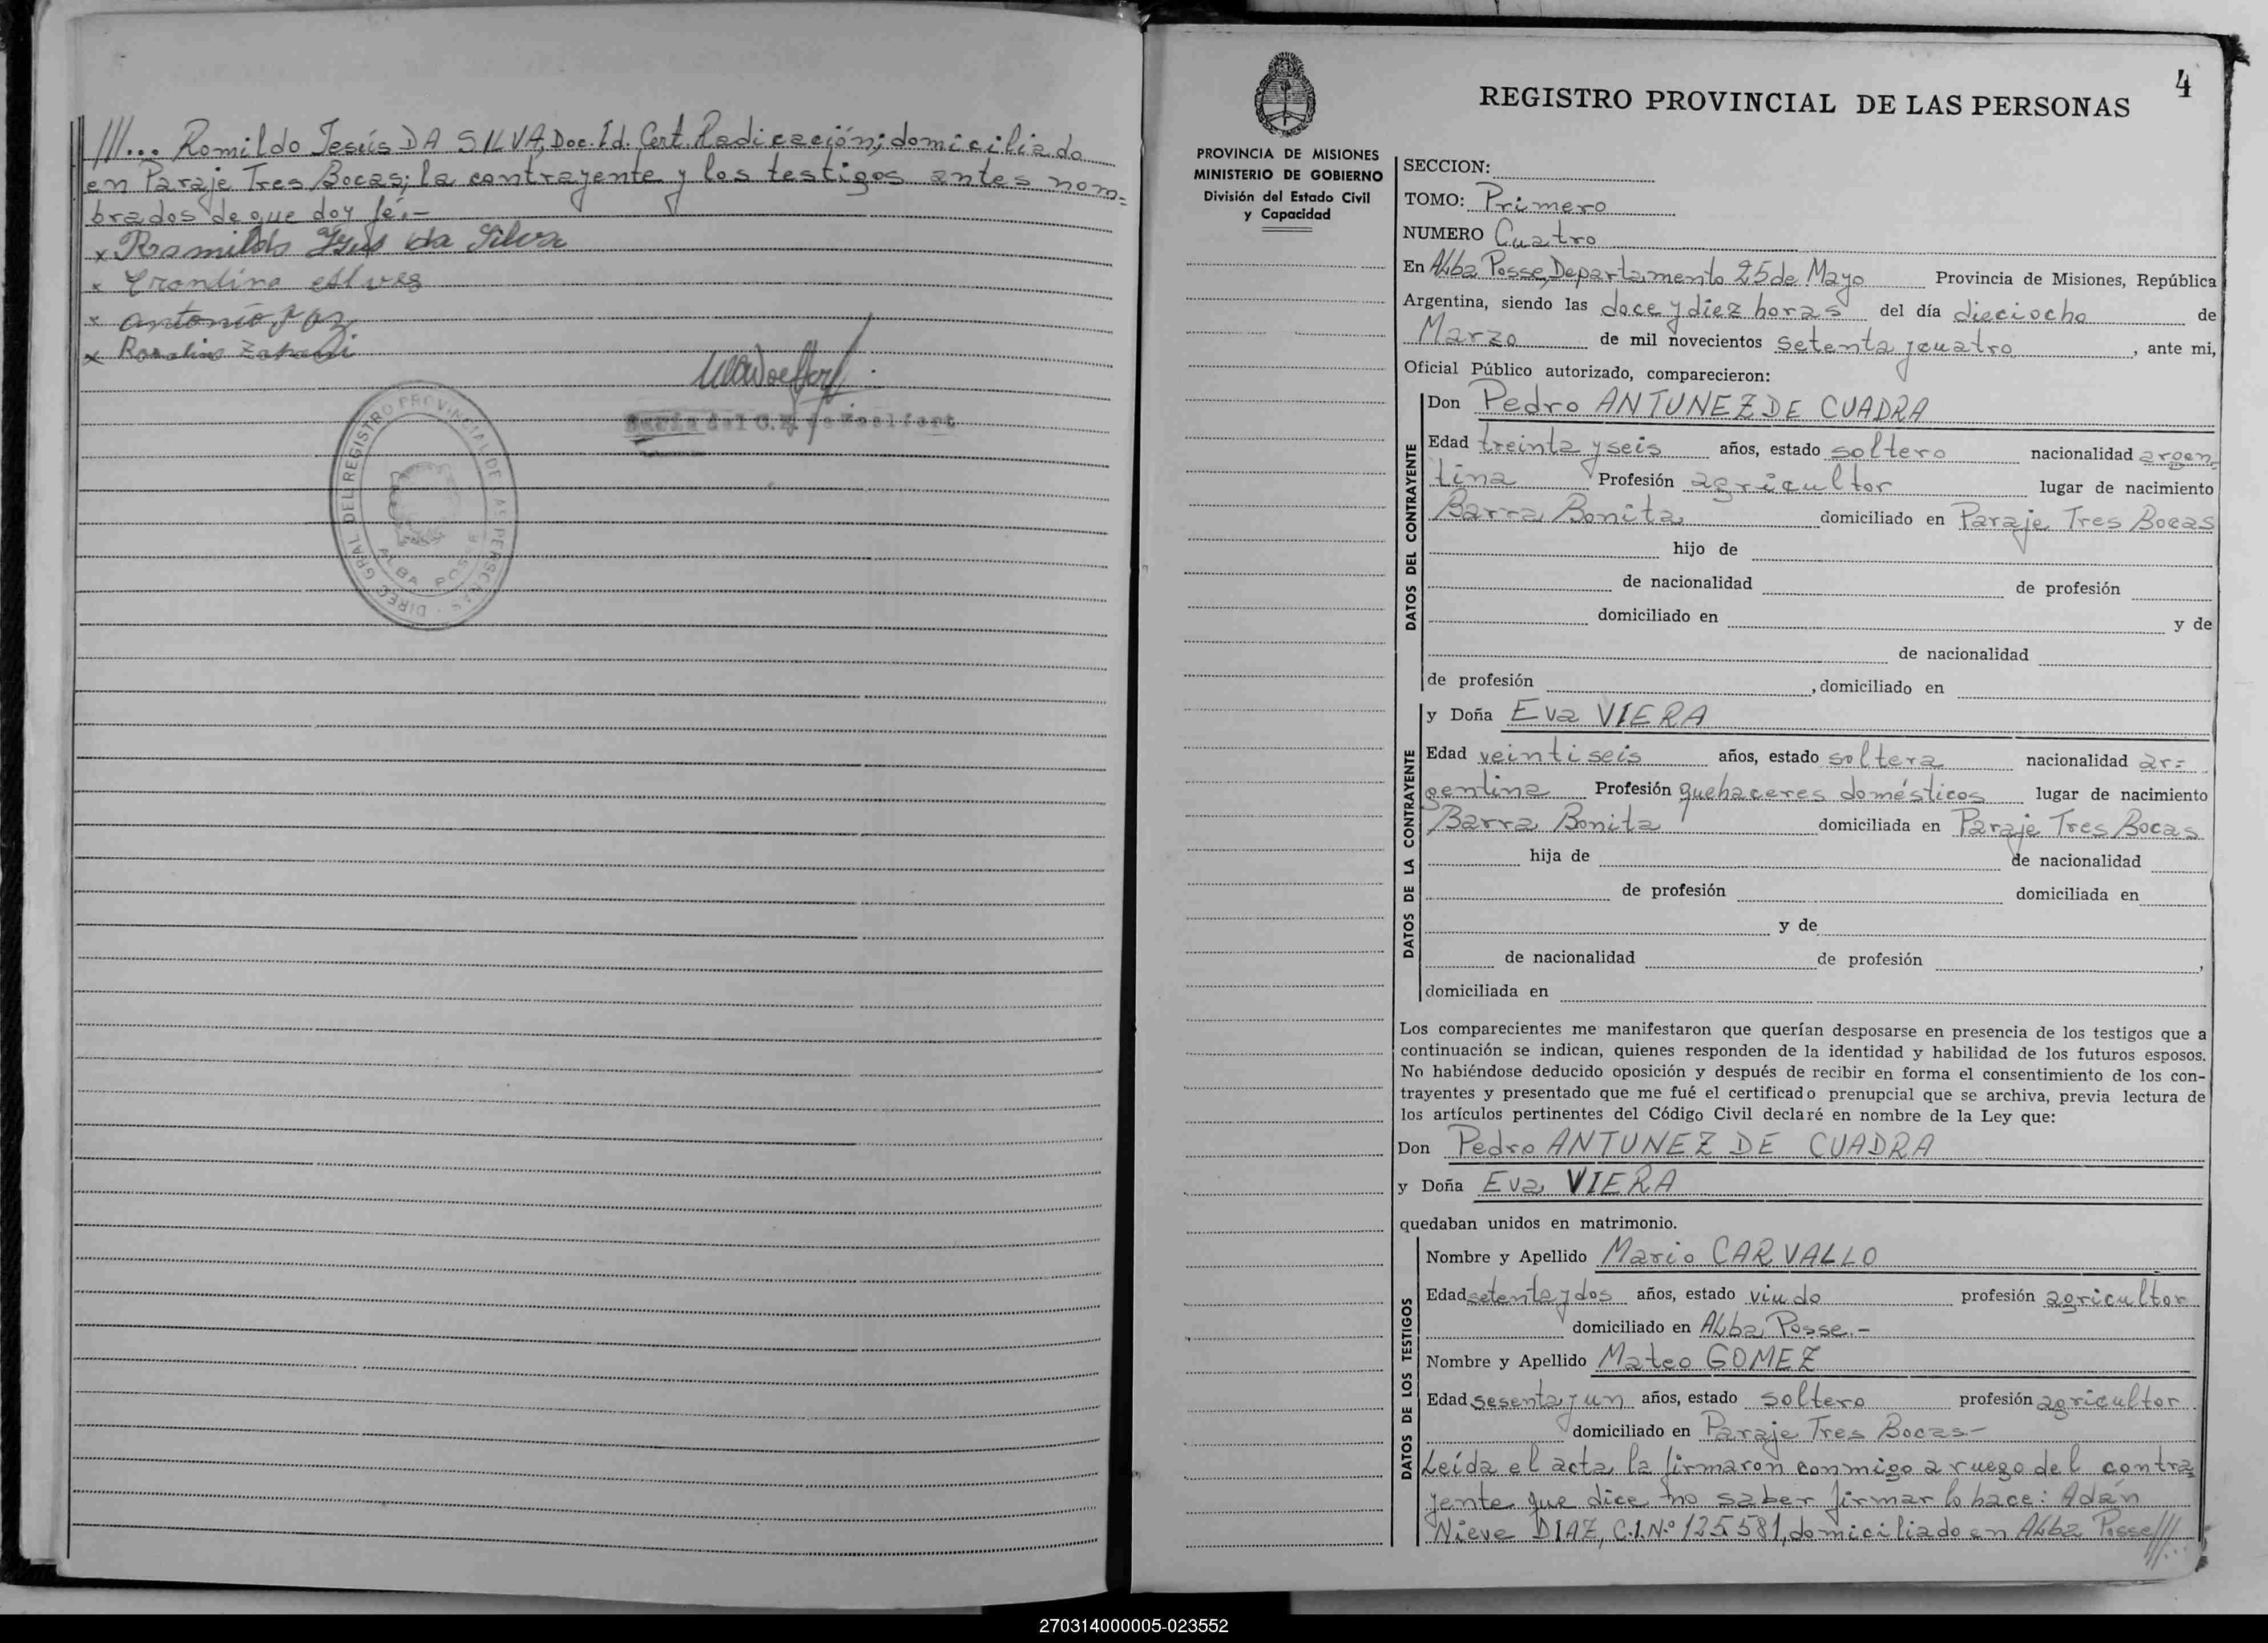 ///... Romildo Jesús DA SILVA, Doc. Id. Cert. Radicación; domiciliado
en Paraje Tres Bocas; la contrayente y los testigos antes nom=
brados de que doy fé.-
x Romildo Jesus da Silva
x
x Antonio Paz
x
DIREC. GRAL. DEL REGISTRO PROVINCIAL DE LAS PERSONAS
ALBA POSSE
4
REGISTRO PROVINCIAL DE LAS PERSONAS
PROVINCIA DE MISIONES
MINISTERIO DE GOBIERNO
División del Estado Civil
y Capacidad
SECCION:
TOMO: Primero
NUMERO Cuatro
En Alba Posse, Departamento 25 de Mayo Provincia de Misiones, República
Argentina, siendo las doce y diez horas del día dieciocho de
Marzo de mil novecientos setenta y cuatro, ante mi,
Oficial Público autorizado, comparecieron:
DATOS DEL CONTRAYENTE
Don Pedro ANTUNEZ DE CUADRA
Edad treinta y seis años, estado soltero nacionalidad argen=
tina Profesión agricultor lugar de nacimiento
Barra Bonita domiciliado en Paraje Tres Bocas
hijo de
de nacionalidad de profesión
domiciliado en y de
de nacionalidad
de profesión , domiciliado en
DATOS DE LA CONTRAYENTE
y Doña Eva VIERA
Edad veintiseis años, estado soltera nacionalidad ar=
gentina Profesión quehaceres domésticos lugar de nacimiento
Barra Bonita domiciliada en Paraje Tres Bocas
hija de de nacionalidad
de profesión domiciliada en
y de
de nacionalidad de profesión ,
domiciliada en
Los comparecientes me manifestaron que querían desposarse en presencia de los testigos que a
continuación se indican, quienes responden de la identidad y habilidad de los futuros esposos.
No habiéndose deducido oposición y después de recibir en forma el consentimiento de los con-
trayentes y presentado que me fué el certificado prenupcial que se archiva, previa lectura de
los artículos pertinentes del Código Civil declaré en nombre de la Ley que:
Don Pedro ANTUNEZ DE CUADRA
y Doña Eva VIERA
quedaban unidos en matrimonio.
DATOS DE LOS TESTIGOS
Nombre y Apellido Mario CARVALLO
Edad setenta y dos años, estado viudo profesión agricultor
domiciliado en Alba Posse.-
Nombre y Apellido Mateo GOMEZ
Edad sesenta y un años, estado soltero profesión agricultor
domiciliado en Paraje Tres Bocas-
Leída el acta la firmaron conmigo a ruego del contra
yente que dice no saber firmar lo hace: Adán
Nieve DIAZ, C.I.Nº 125581, domiciliado en Alba Posse///
///...
270314000005-023552